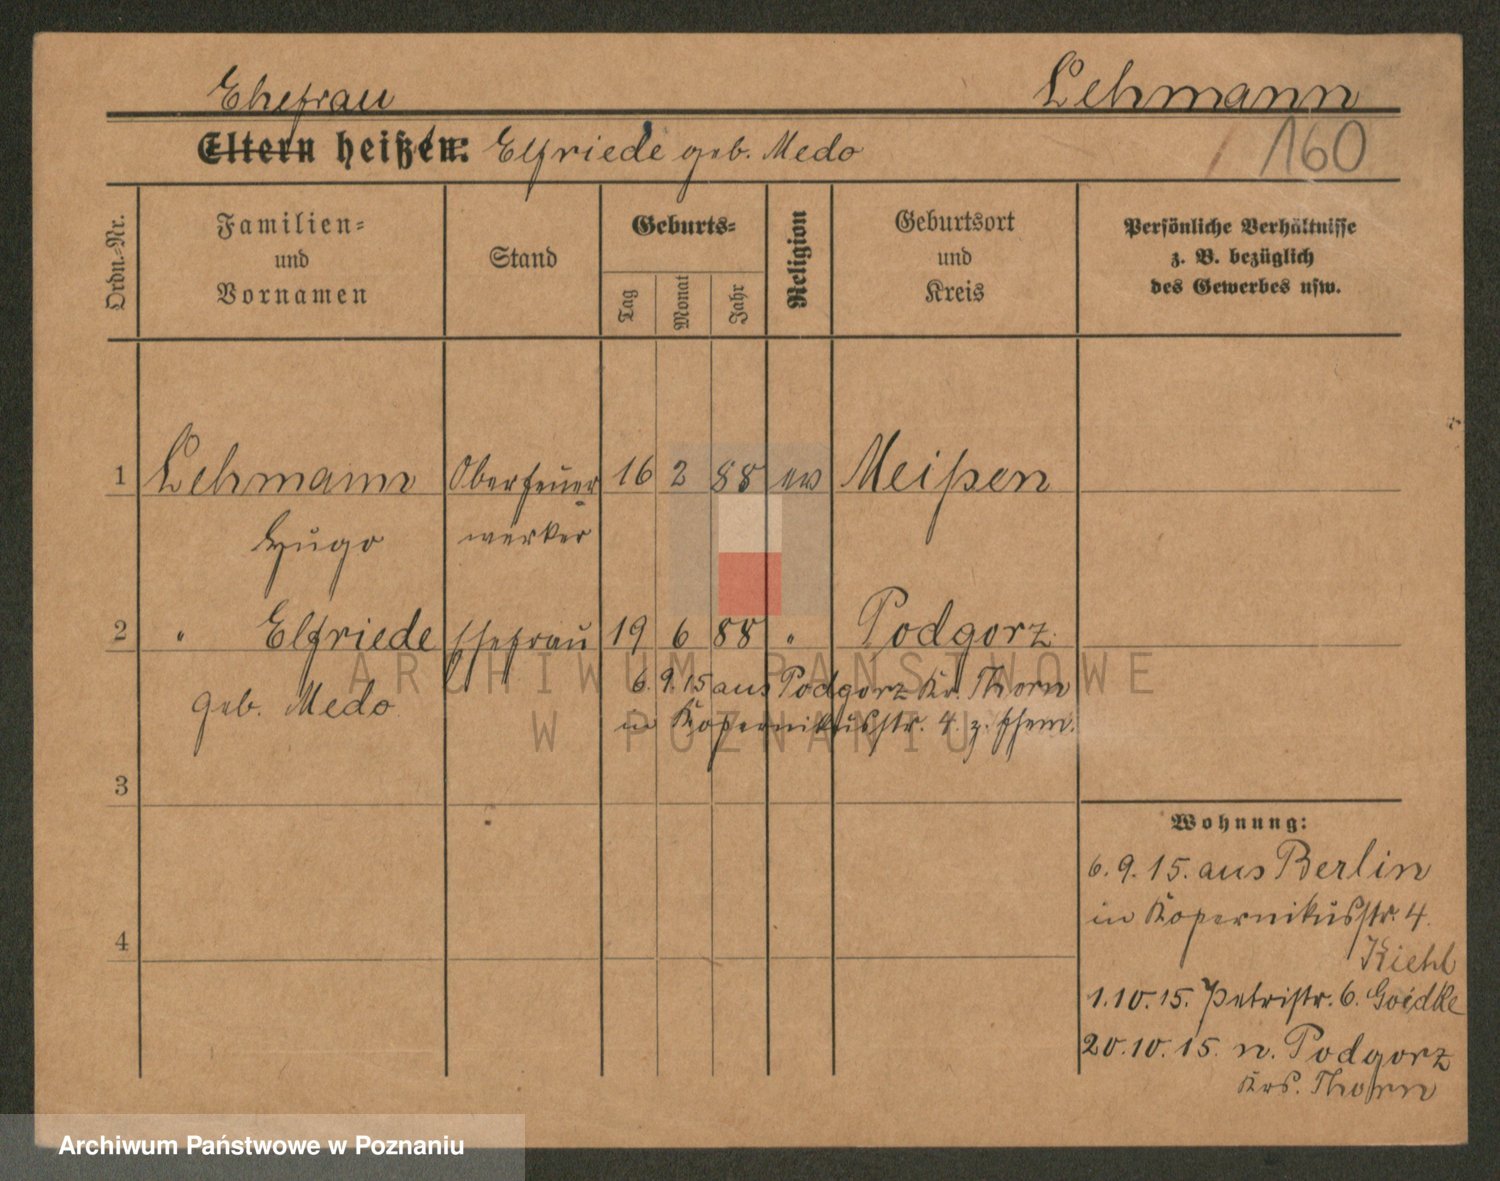 Ehefrau
Lehmann
Eltern heißen: Elfriede geb. Medo
160
Ordn.-Nr.
Familien-
und
Vornamen
Stand
Geburts-
Tag
Monat
Jahr
Religion
Geburtsort
und
Kreis
Persönliche Verhältnisse
z. B. bezüglich
des Gewerbes usw.
1 Lehmann Oberfeuer 16 2 88 ev Meißen
Hugo werker
2 " Elfriede Ehefrau 19 6 88 " Podgorz
ARCHIWUM PAŃSTWOWE
geb. Medo 6.9.15 aus Podgorz Kr. Thorn
in Kopernikusstr. 4. z. Ehem.
W POZNANIU
3
Wohnung:
6.9.15. aus Berlin
in Kopernikusstr. 4.
4
Kiehl
1.10.15. Petristr. 6. Goedke
20.10.15. n. Podgorz
Krs. Thorn
Archiwum Państwowe w Poznaniu